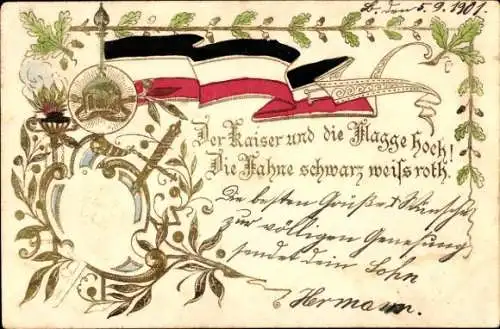 B., den 5.9.1901.
Der Kaiser und die Flagge hoch!
Die Fahne schwarz weiss roth.
Die besten Grüße & Wünsche
zur völligen Genesung
sendet dein Sohn
Hermann.